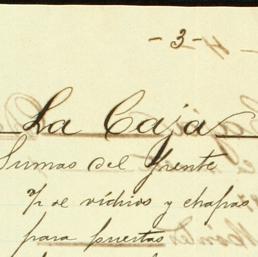 - 3 -
La Caja
Sumas del frente
p. de vidrios y chapas
para puertas